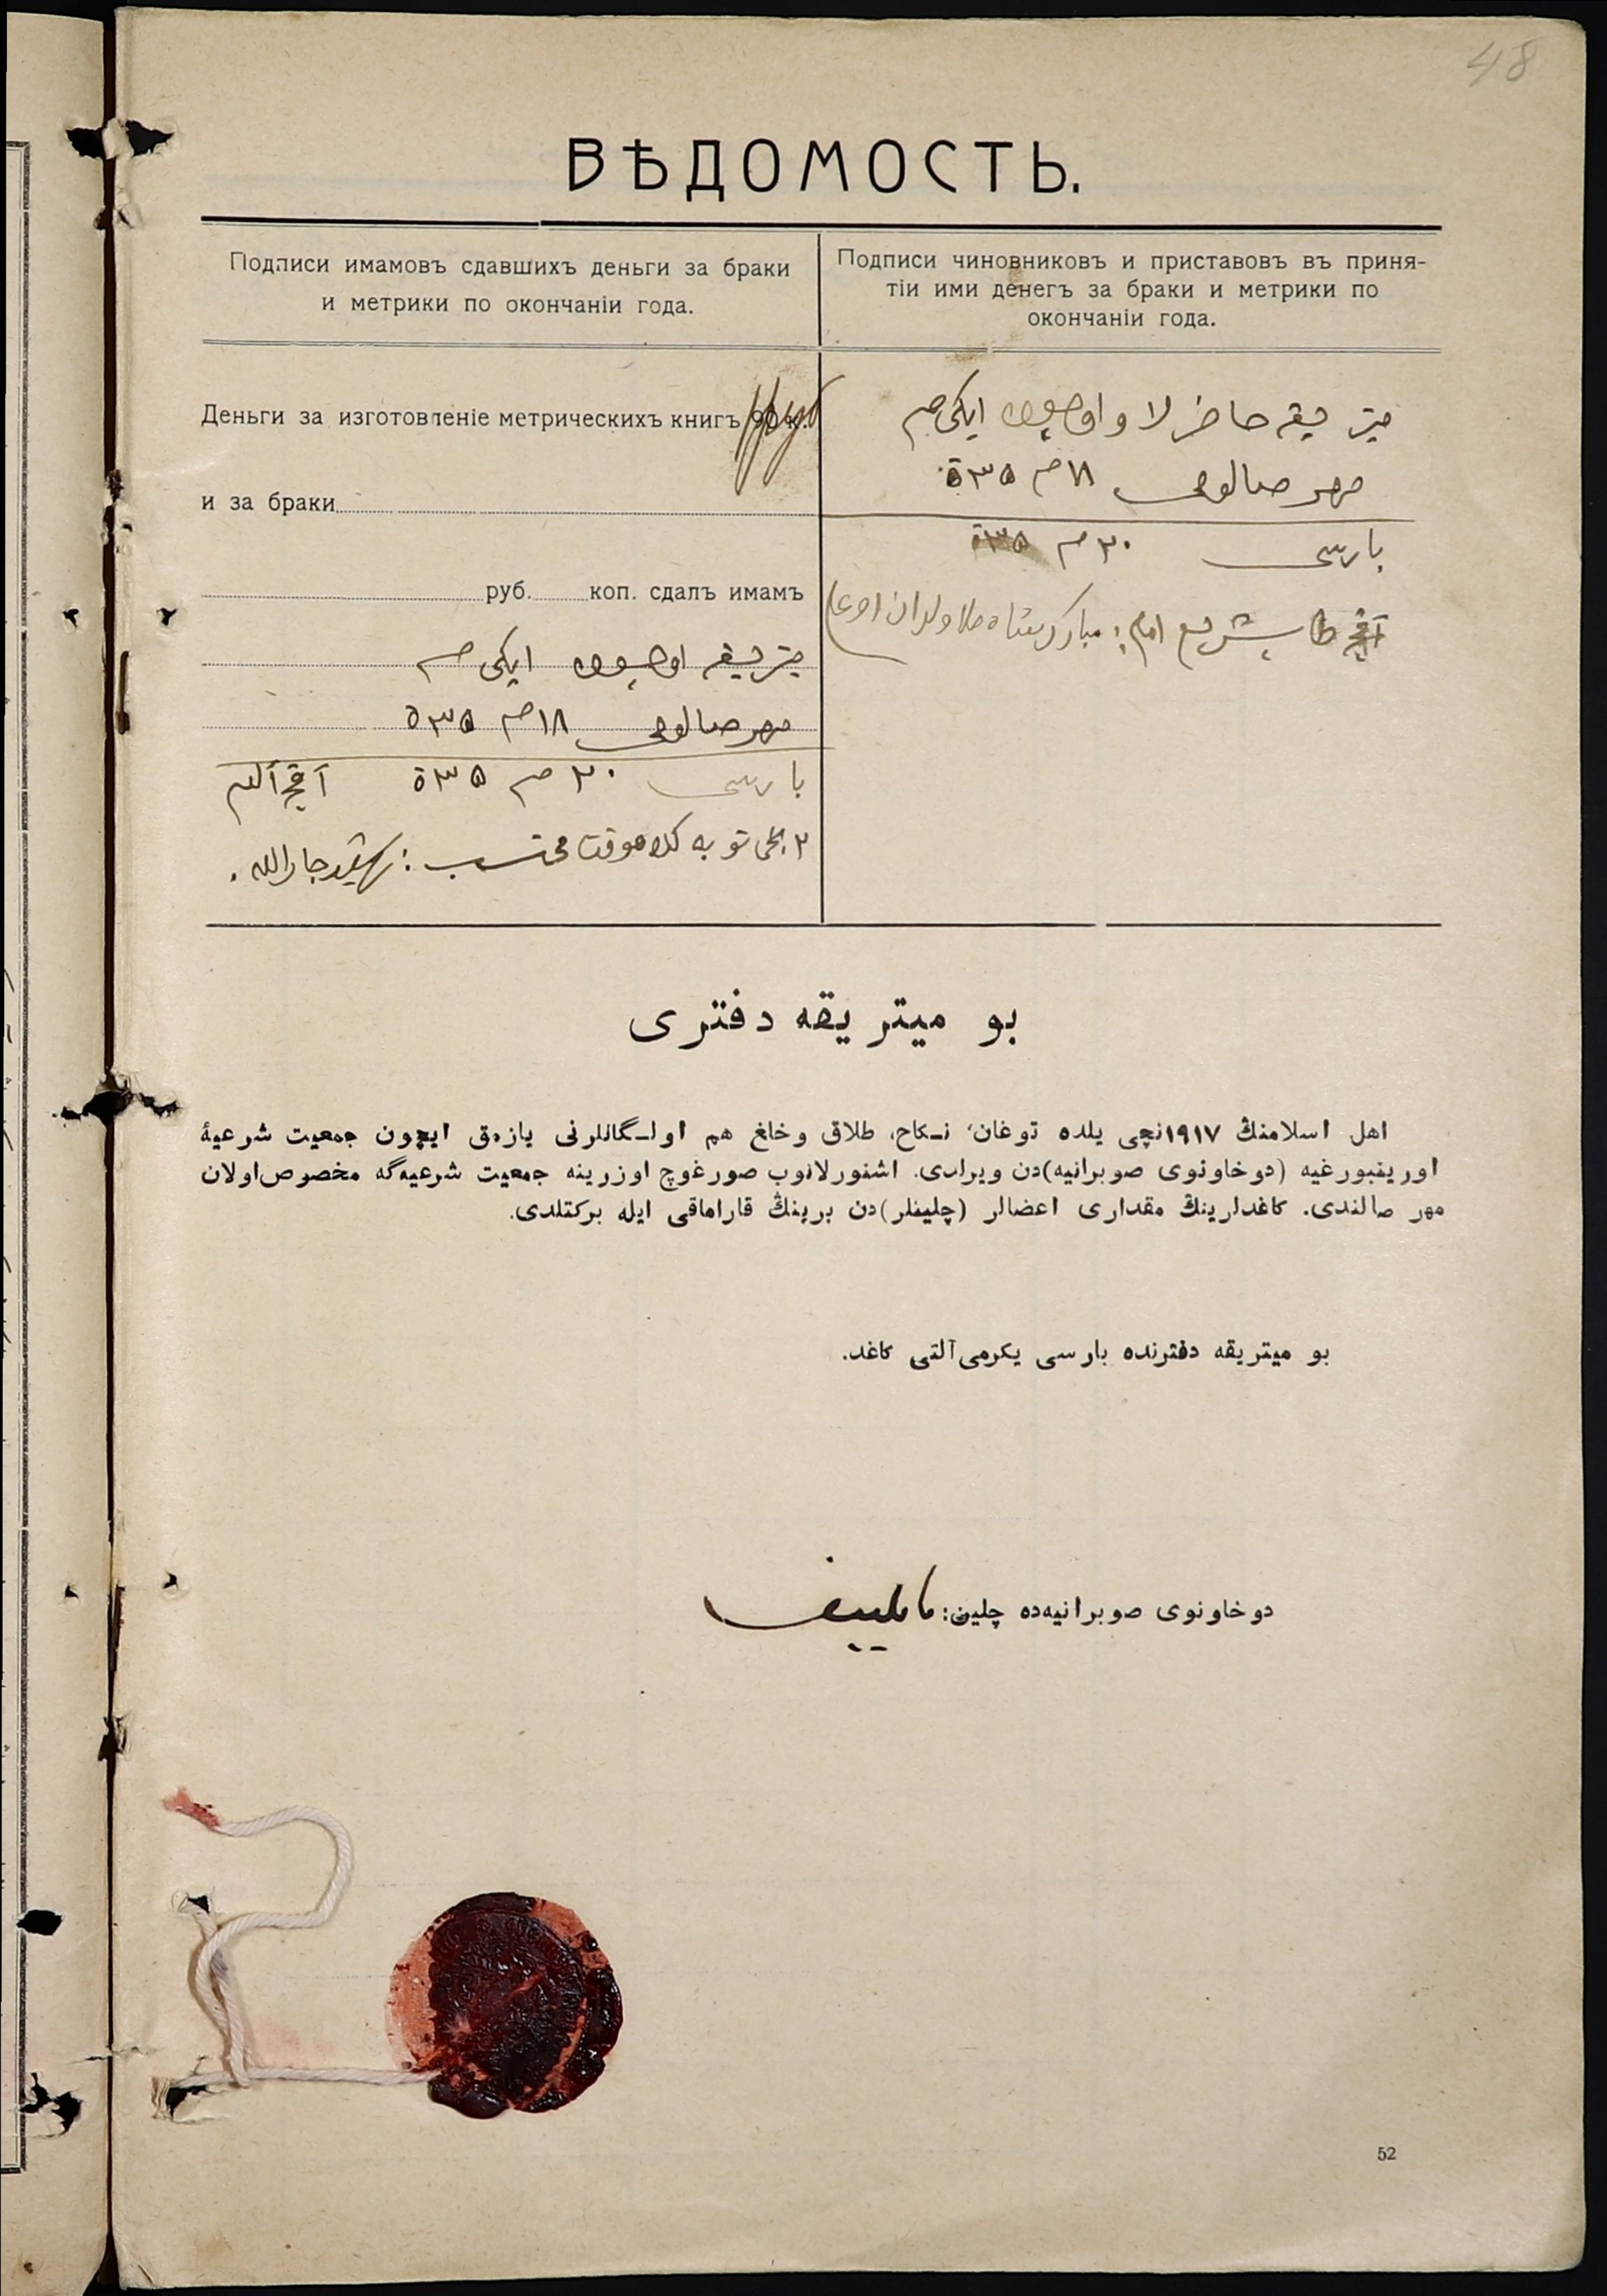 48
ВѢДОМОСТЬ.
Подписи имамовъ сдавшихъ деньги за браки
и метрики по окончаніи года.
Подписи чиновниковъ и приставовъ въ приня-
тіи ими денегъ за браки и метрики по
окончаніи года.
Деньги за изготовленіе метрическихъ книгъ 90 к.
и за браки
руб. коп. сдалъ имамъ
میتریقه اوچون ایکی صم
مهر صالوی ١٨ صم ٣٥
بارسی ٢٠ صم ٣٥ آقچه آلدم
محتسب : جارالله .
میتریقه حاضرلاو اوچون ایکی صم
مهر صالوی ١٨ صم ٣٥
بارسی ٢٠ صم ٣٥
امام :
بو میتریقه دفتری
اهل اسلامنڭ ١٩١٧نچی یلده توغان، نـكاح، طلاق وخلغ هم اولـگانلرنی یازمق ایچون جمعیت شرعیهٔ
اورینبورغیه (دوخاونوی صوبرانیه)دن ویرلدی. اشنورلانوب صورغوچ اوزرینه جمعیت شرعیه‌گه مخصوص اولان
مهر صالندی. کاغدلرینڭ مقداری اعضالر (چلینلر)دن برینڭ قاراماقی ایله برکتلدی.
بو میتریقه دفترنده بارسی یکرمی آلتی کاغد.
دوخاونوی صوبرانیه‌ده چلین:
52